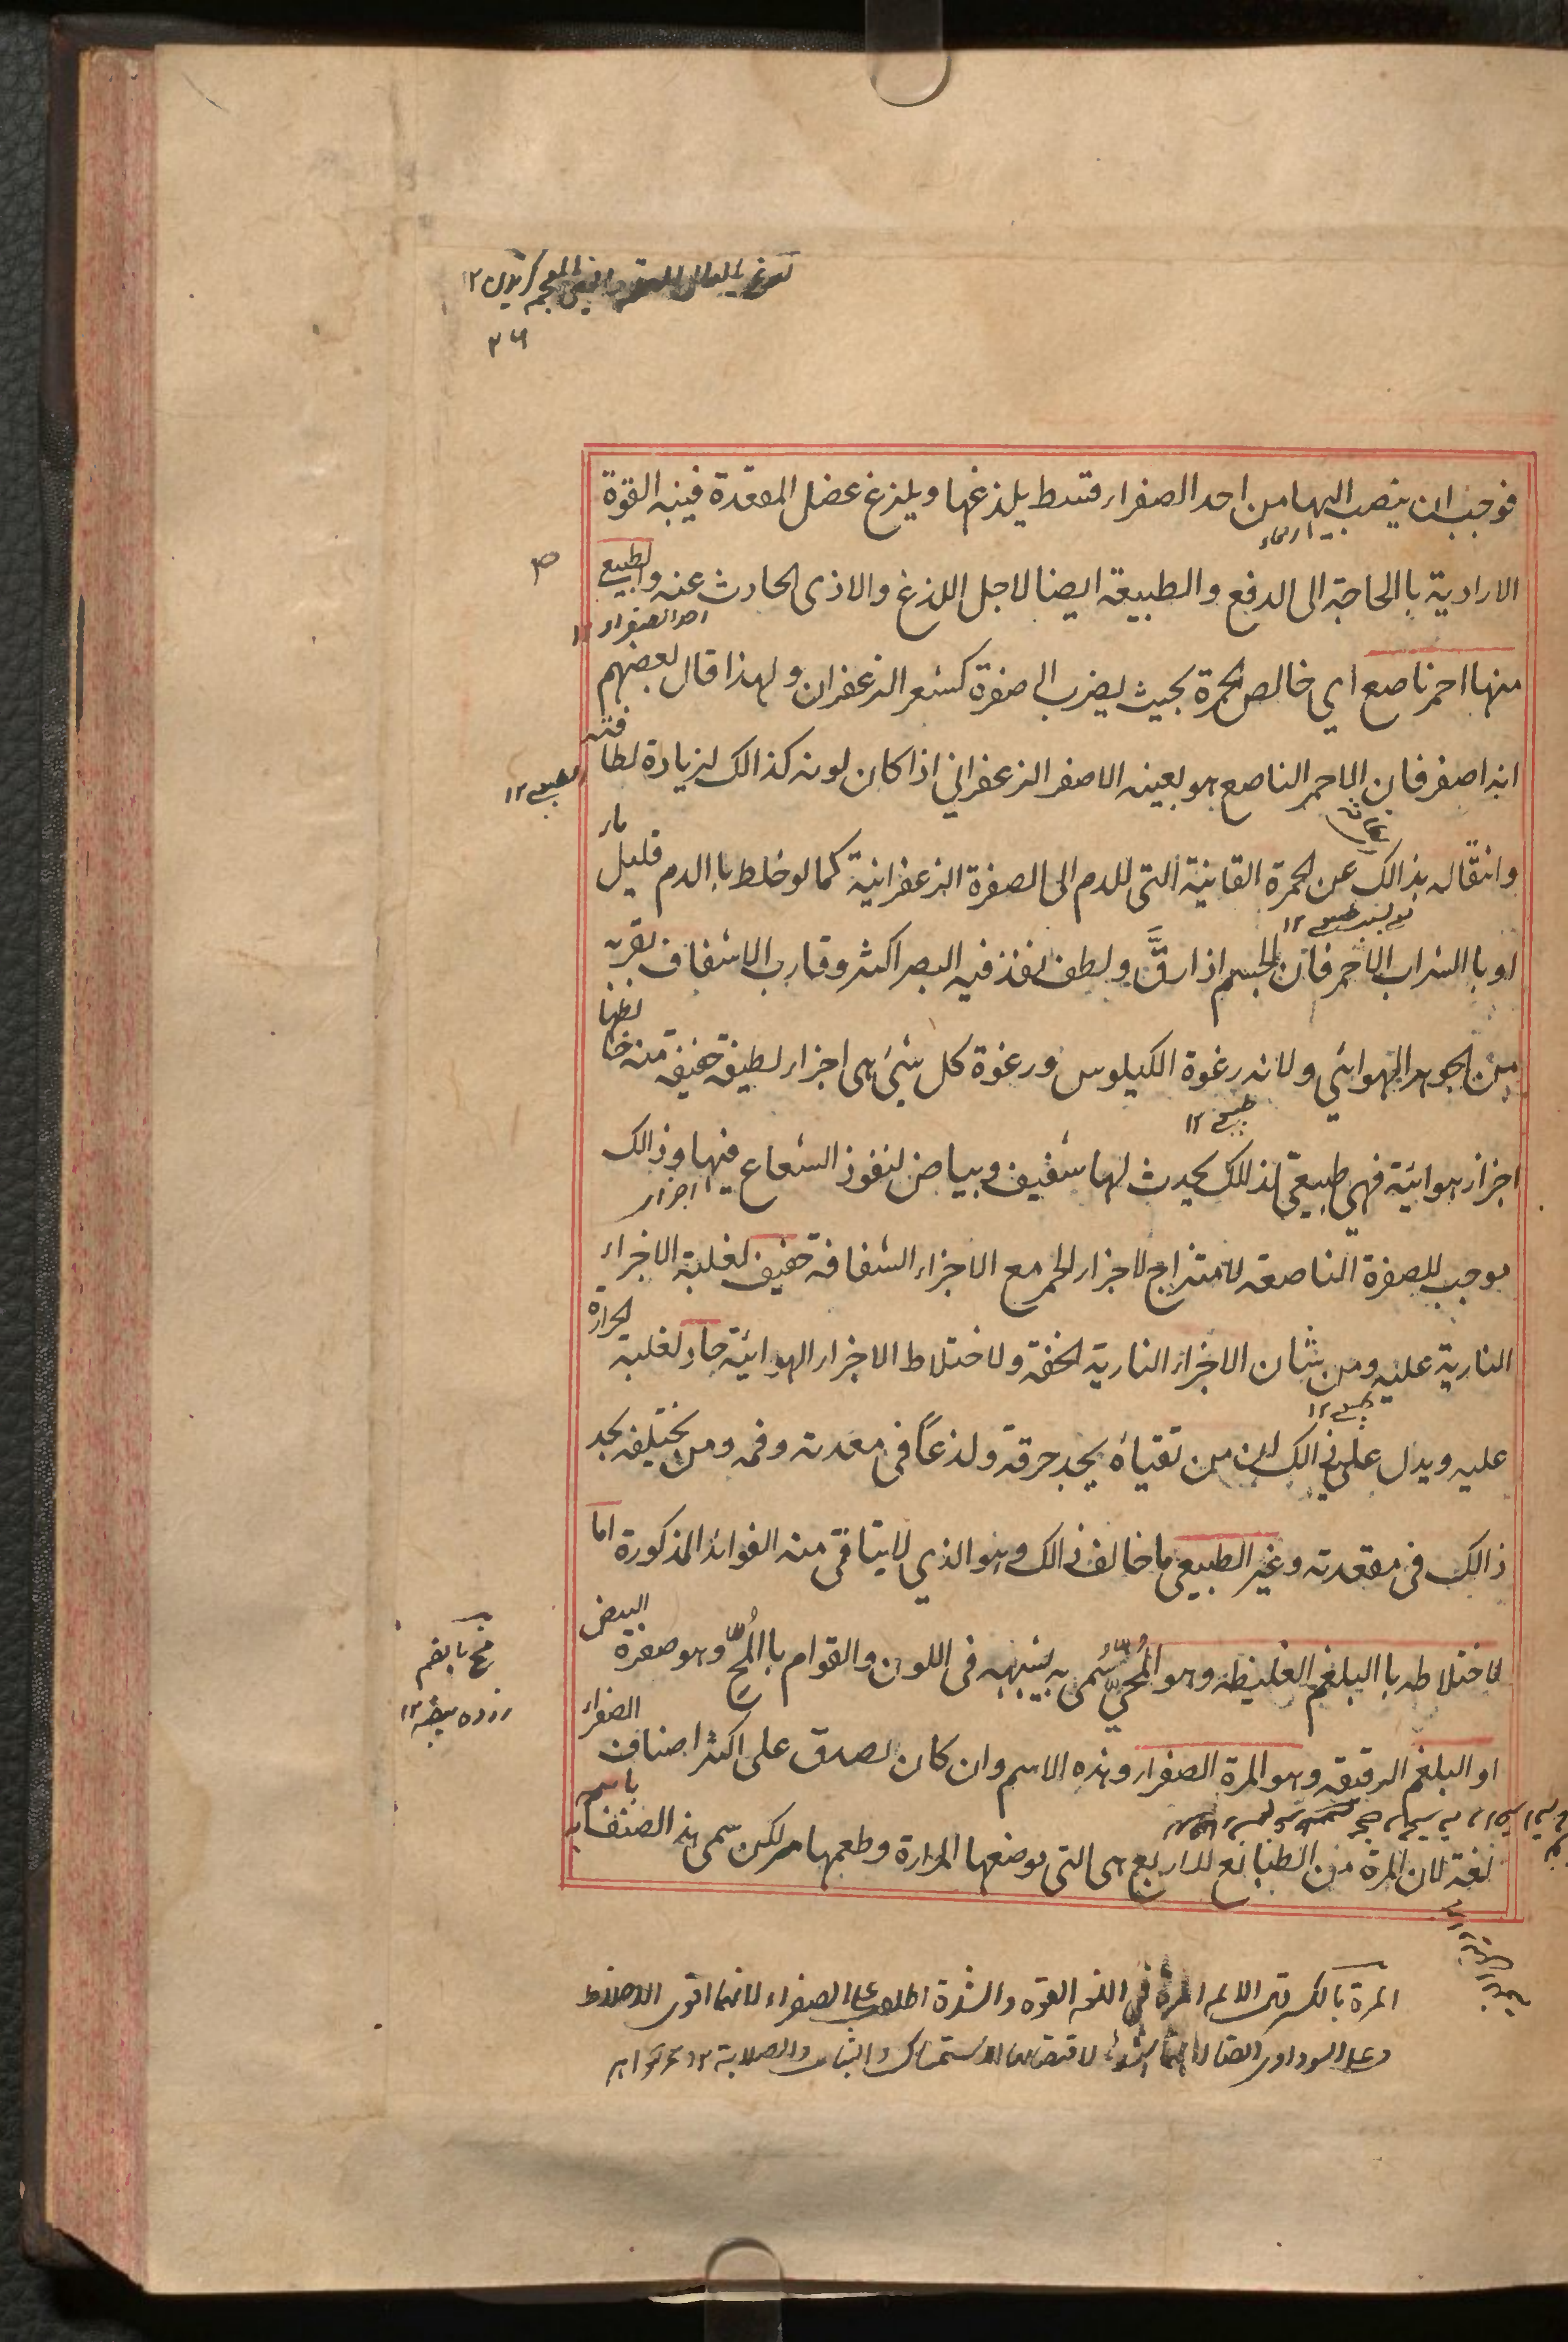 ٢٦
فوجب ان ينصب اليها من احد الصفراء قسط يلذغها و يلزغ عضل المقعدة فينبه القوة
الامعاء
الارادية باالحاجة الى الدفع والطبيعة ايضا لاجل اللذغ والاذى الحادث عنه والطبيعي
احد الصفراء ١٢
منها احمر ناصع اي خالص الحمرة بحيث يضرب الى صفرة كشعر الزعفران ولهذا قال بعضهم
انه اصفر فان الاحمر الناصع هو بعينه الاصفر الزعفراني اذا كان لونه كذالك لزيادة لطافته
طبيعي ١٢
وانتقاله بذالك عن الحمرة القانية التى للدم الى الصفرة الزعفرانية كما لو خلط باالدم قليل ماء
او باالشراب الاحمر فان الجسم اذا رقَّ ولطف نفذ فيه البصر اكثر وقارب الاشفاف لقربه
من الجوهر الهوائي ولانه رغوة الكيلوس ورغوة كل شيئ هى اجزاء لطيفة خفيفة منه خالطها
طبيعي ١٢
اجزاء هوائية فهي طبيعي لذلك يحدث لها شفيف وبياض لنفوذ الشعاع فيها وذالك
اجزاء
موجب للصفرة الناصعة لامتزاج الاجزاء الحمر مع الاجزاء الشفافة خفيف لغلبة الاجزاء
النارية عليه ومن شان الاجزاء النارية الخفة ولاختلاط الاجزاء الهوائية حاد لغلبة الحرارة
طبيعي ١٢
عليه ويدل على ذالك ان من تقياه يجد حرقة ولذعاً فى معدته وفمه ومن يختلفه يجد
ذالك فى مقعدته وغير الطبيعي ما خالف ذالك وهو الذي لايتاتى منه الفوائد المذكورة اما
لاختلاطه باالبلغم الغليظ وهو المُحّيّ سُمى به لشبهه فى اللون والقوام باالمُحّ وهو صفرة البيض
مح بالضم
زرده بيضه ١٢
او البلغم الرقيقه وهو المرة الصفراء وهذه الاسم وان كان يصدق على اكثر اصناف الصفراء
لغة لان المرة من الطبائع الاربع هى التى موضعها المرارة وطعمها مر لكن سمى هذ الصنف باسم
المرة بالكسر فى اللغه القوه والشدة اطلق على الصفراء لانها اقوى الاخلاط
وعلى السوداوى ايضا لانها اشد لاقتضائها الاستمساك والثبات والصلابة ١٢